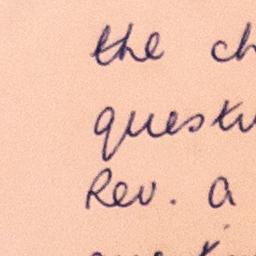 the ch
quest
Rev. a